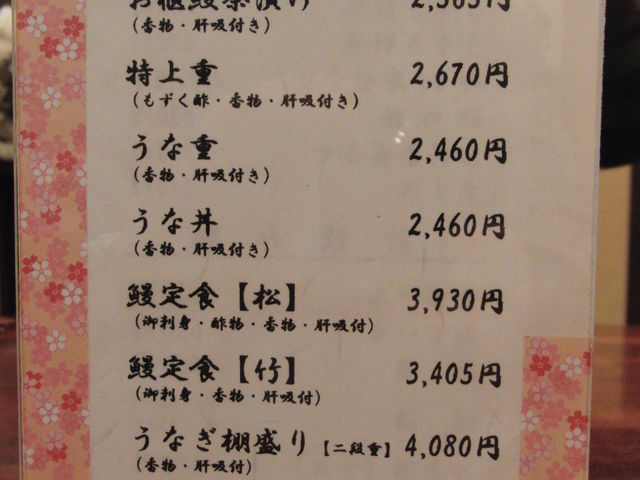 お櫃鰻茶漬り 2,565円
(香物・肝吸付き)
特上重 2,670円
(もずく酢・香物・肝吸付き)
うな重 2,460円
(香物・肝吸付き)
うな丼 2,460円
(香物・肝吸付き)
鰻定食【松】 3,930円
(御刺身・酢物・香物・肝吸付)
鰻定食【竹】 3,405円
(御刺身・香物・肝吸付)
うなぎ棚盛り【二段重】 4,080円
(香物・肝吸付)